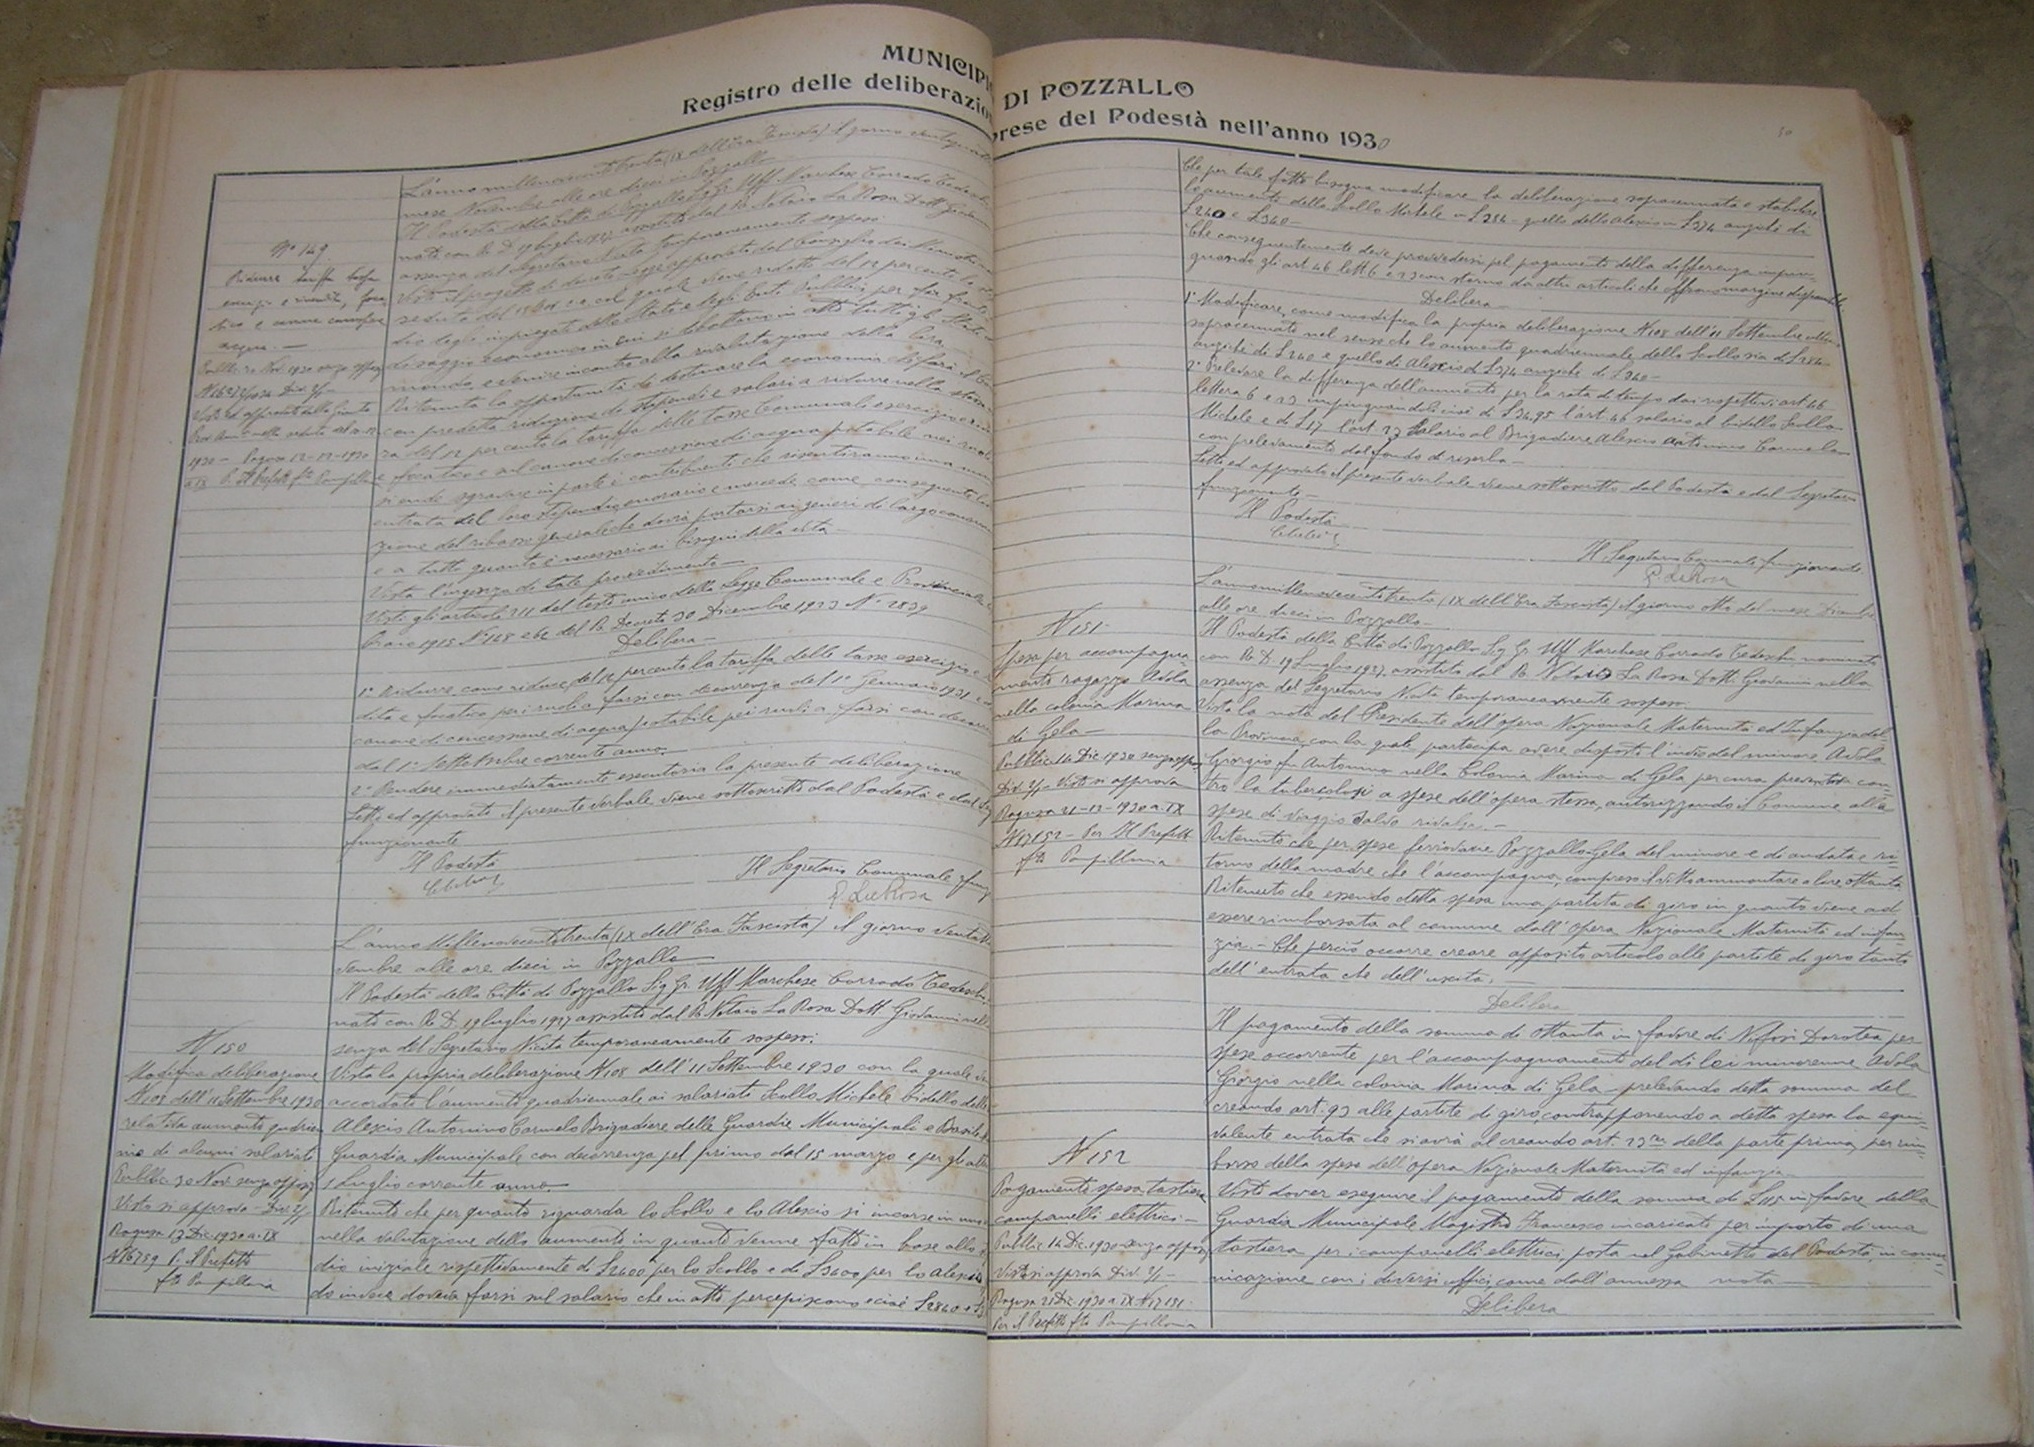 MUNICIPIO DI POZZALLO
Registro delle deliberazio prese del Podestà nell'anno 1930
30
L'anno millenovecentotrenta (IX dell'Era Fascista) il giorno
mese Novembre alle ore dieci in Pozzallo
Il Podestà della Città di Pozzallo Sig. Gr. Uff. Marchese Corrado Tedeschi
nato con R. D. 19 luglio 1927 assistito dal R. Notaio La Rosa Dott. Giovanni
assenza del Segretario Nicita temporaneamente sospeso.
N° 149
Ridurre tariffa tassa
esercizi e rivendite, foca
tico e canone
acqua.—
Visto il progetto di decreto legge approvato dal Consiglio dei Ministri
seduta del col quale viene ridotto del 12 per cento lo
dio degli impiegati dello Stato e degli Enti Pubblici per far fronte
disagio economico in cui si dibattono in atto tutti gli Stati
mondo e venire incontro alla rivalutazione della lira
Ritenuta la opportunità di destinare la economia
con predetta riduzione di stipendi e salari a ridurre nella stessa
ra del 12 per cento la tariffa delle tasse Comunali esercizio
e focatico e sul canone di concessione di acqua potabile nei ruoli
si onde sgravare in parte i contribuenti che risentiranno una
entrata del loro stipendio onorario e mercede come conseguente
zione del ribasso generale che dovrà portarsi ai generi di largo consumo
e a tutto quanto è necessario ai bisogni della vita—
Vista l'urgenza di tale provvedimento—
Visti gli articoli 211 del testo unico della Legge Comunale e Provinciale
braio 1915 N° 148 e 62 del R. Decreto 30 Dicembre 1923 N° 2839
Delibera—
1° Ridurre come riduce del 12 per cento la tariffa delle tasse esercizio e
dita e focatico pei ruoli a farsi con decorrenza del 1° Gennaio 1931 e
canone di concessione di acqua potabile pei ruoli a farsi con
dal 1° Settembre corrente anno
2° Rendere immediatamente esecutoria la presente deliberazione
Letto ed approvato il presente verbale viene sottoscritto dal Podestà e dal Seg
funzionante
Il Podestà
Il Segretario Comunale funz
G. La Rosa
L'anno Millenovecentotrenta (IX dell'Era Fascista) il giorno
vembre alle ore dieci in Pozzallo—
Il Podestà della Città di Pozzallo Sig. Gr. Uff. Marchese Corrado Tedeschi
nato con R. D. 19 luglio 1927 assistito dal R. Notaio La Rosa Dott. Giovanni nell
senza del Segretario Nicita temporaneamente sospeso.
N 150
Modifica deliberazione
N 108 dell'11 Settembre 1930
relativa aumento quadrien
nio di alcuni salariati
Pubblic. 30 Nov. senza oppos.
Visto si approva— Div. 2/1
Ragusa 13 Dic. 1930 a. IX
N 16759 P. Il Prefetto
fto Pampillonia
Vista la propria deliberazione N 108 dell'11 Settembre 1930 con la quale
accordato l'aumento quadriennale ai salariati Scollo Michele bidello delle
Alescio Antonino Carmelo Brigadiere delle Guardie Municipali e Basile
Guardia Municipale con decorrenza pel primo dal 15 marzo e per gli altri
1 Luglio corrente anno.
Ritenuto che per quanto riguarda lo Scollo e lo Alescio si incorse in un
nella valutazione dello aumento in quanto venne fatto in base allo
dio iniziale rispettivamente di £2400 per lo Scollo e di £3400 per lo Alescio
do invece doveva farsi sul salario che in atto percepiscono e cioè £2840 e £3
Che per tale fatto bisogna modificare la deliberazione sopracennata e stabilire
lo aumento dello Scollo Michele in £284— quello dello Alescio in £374 anzichè di
£240 e £340—
Che conseguentemente deve provvedersi pel pagamento della differenza impin-
guando gli art. 46 lett 6 e 23 con storno da altri articoli che offrono margine disponibile
Delibera—
1° Modificare, come modifica la propria deliberazione N 108 dell'11 Settembre ultimo
sopracennata nel senso che lo aumento quadriennale dello Scollo sia di £284—
anzichè di £240 e quello di Alescio di £374 anzichè di £340—
2° Prelevare la differenza dell'aumento per la rata di tempo dai rispettivi art. 46
lettera 6 e 23 impinguandoli cioè di £34,95 l'art. 46 salario al bidello Scollo
Michele e di £17 l'art. 23 Salario al Brigadiere Alescio Antonino Carmelo
con prelevamento dal fondo di riserva—
Letto ed approvato il presente verbale viene sottoscritto dal Podestà e dal Segretario
funzionante—
Il Podestà
Il Segretario Comunale funzionante
G. La Rosa
L'anno millenovecentotrenta (IX dell'Era Fascista) il giorno otto del mese Dicembre
alle ore dieci in Pozzallo—
Il Podestà della Città di Pozzallo Sig. Gr. Uff. Marchese Corrado Tedeschi nominato
con R. D. 19 Luglio 1927, assistito dal R. Notaio La Rosa Dott. Giovanni nella
assenza del Segretario Nicita temporaneamente sospeso.
N 151
Spesa per accompagna
mento ragazzo Avola
nella colonia Marina
di Gela—
Pubblic. 14 Dic. 1930 senza oppos.
Div. 2/1— Visto si approva
Ragusa 21-12-1930 a. IX
N 17152— Per Il Prefetto
fto Pampillonia
Vista la nota del Presidente dell'opera Nazionale Maternità ed Infanzia del-
la Provincia con la quale partecipa avere disposto l'invio del minore Avola
Giorgio fu Antonino nella Colonia Marina di Gela per cura preventiva con-
tro la tubercolosi a spese dell'opera stessa, autorizzando il Comune alle
spese di viaggio salvo rivalsa.—
Ritenuto che per spese ferroviarie Pozzallo-Gela del minore e di andata e ri-
torno della madre che l'accompagna, compreso il vitto ammontare a lire ottanta
Ritenuto che essendo detta spesa una partita di giro in quanto viene ad
essere rimborsata al comune dall'Opera Nazionale Maternità ed infan-
zia.— Che perciò occorre creare apposito articolo alle partite di giro tanto
dell'entrata che dell'uscita.
Delibera
Il pagamento della somma di ottanta in favore di Nifosì Dorotea per
spese occorrente per l'accompagnamento del di lei minorenne Avola
Giorgio nella colonia Marina di Gela— prelevando detta somma del
creando art. 93 alle partite di giro, contrapponendo a detta spesa la equi-
valente entrata che si avrà al creando art. 23 della parte prima, per rim-
borso della spesa dell'opera Nazionale Maternità ed infanzia
N 152
Pagamento spesa tastiera
campanelli elettrici—
Pubblic. 14 Dic. 1930 senza oppos.
Visto si approva Div. 2/1—
Ragusa 21 Dic. 1930 a. IX N 17151
Per il Prefetto fto Pampillonia
Visto dover eseguire il pagamento della somma di £115 in favore della
Guardia Municipale Magistro Francesco incaricato per importo di una
tastiera per i campanelli elettrici posta nel Gabinetto del Podestà in comu-
nicazione con i diversi uffici, come dall'annessa nota—
Delibera